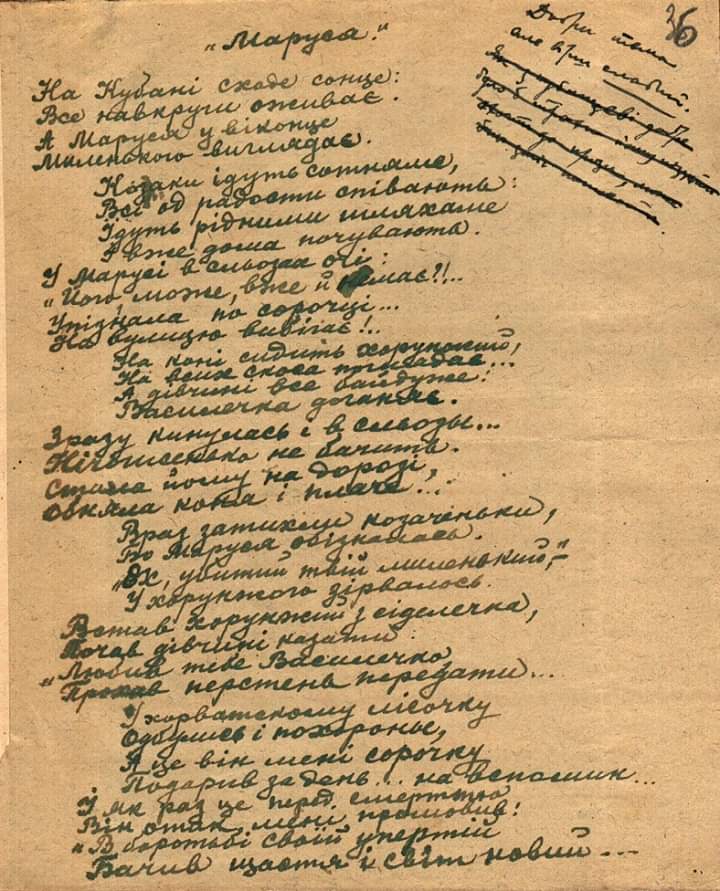 36
Добри тема
але вірш слабий.
"Маруся."
На Кубані сходе сонце:
Все навкруги оживає.
А Маруся у віконце
Миленького виглядає.
Козаки ідуть сотняме,
Всі од радости співають:
Їдуть рідними шляхаме
І вже дома почувають.
У Марусі в сльозах очі:
"Його, може, вже й немає?!..
Упізнала по сорочці...
На вулицю вибігає!..
На коні сидить хорунжий,
На всих скоса поглядає...
А дівчині все байдуже!
Василечка доганяє.
Зразу кинулась і в сльозы...
Нічогисенько не бачить.
Стала йому на дорозі,
Обняла коня і плаче...
Враз затихли козаченьки,
Бо Маруся обізналась.
"Ох, убитий твій миленький",-
У хорунжого зірвалось.
Встав Хорунжий з сіделечка,
Почав дівчині казати:
"Любив тебе Василечко,
Прохав перстень передати...
У хорватскому лісочку
Одбулись і похороны,
А це він мені сорочку
Подарив за день... на вспомин...
І як раз це перед смерттю
Він отак мені промовив:
"В боротьбі своїй упертій
Бачив щастя і світ новий...